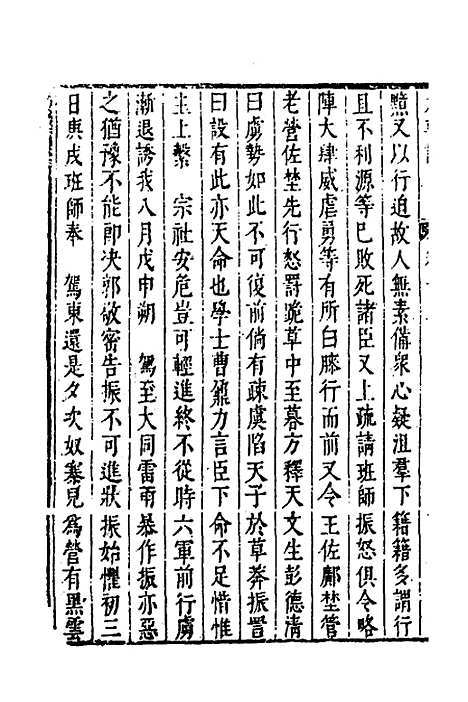 黷又以行迫故人無素備衆心疑沮羣下籍籍多謂行
且不利源等巳敗死諸臣又上疏請班師振怒俱令略
陣大肆威虐勇等有所白膝行而前又令王佐鄺埜管
老營佐埜先行怒罰跪草中至暮方釋天文生彭德清
曰虜勢如此不可復前倘有疎虞陷天子於草莽振詈
曰設有此亦天命也學士曹鼐力言臣下命不足惜惟
主上繫　宗社安危豈可輕進終不從時六軍前行虜
漸退誘我八月戊申朔　駕至大同雷雨暴作振亦惡
之猶豫不能即决郭敬密告振不可進狀振始懼初三
日庚戌班師奉　駕東還是夕次奴寨見為營有黑雲